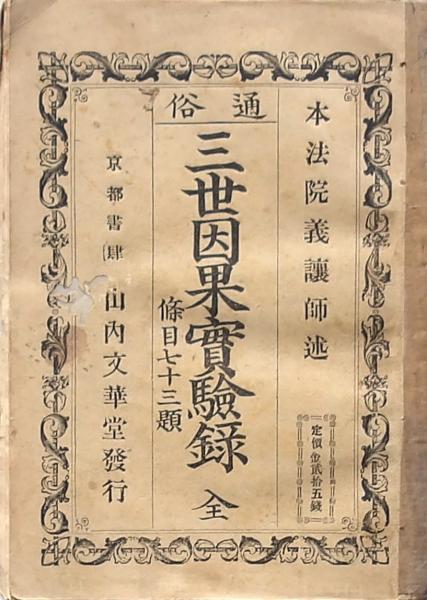 本法院義讓師述
定價金貳拾五錢
通俗
三世因果實驗録 全
條目七十三題
京都書肆 山内文華堂發行